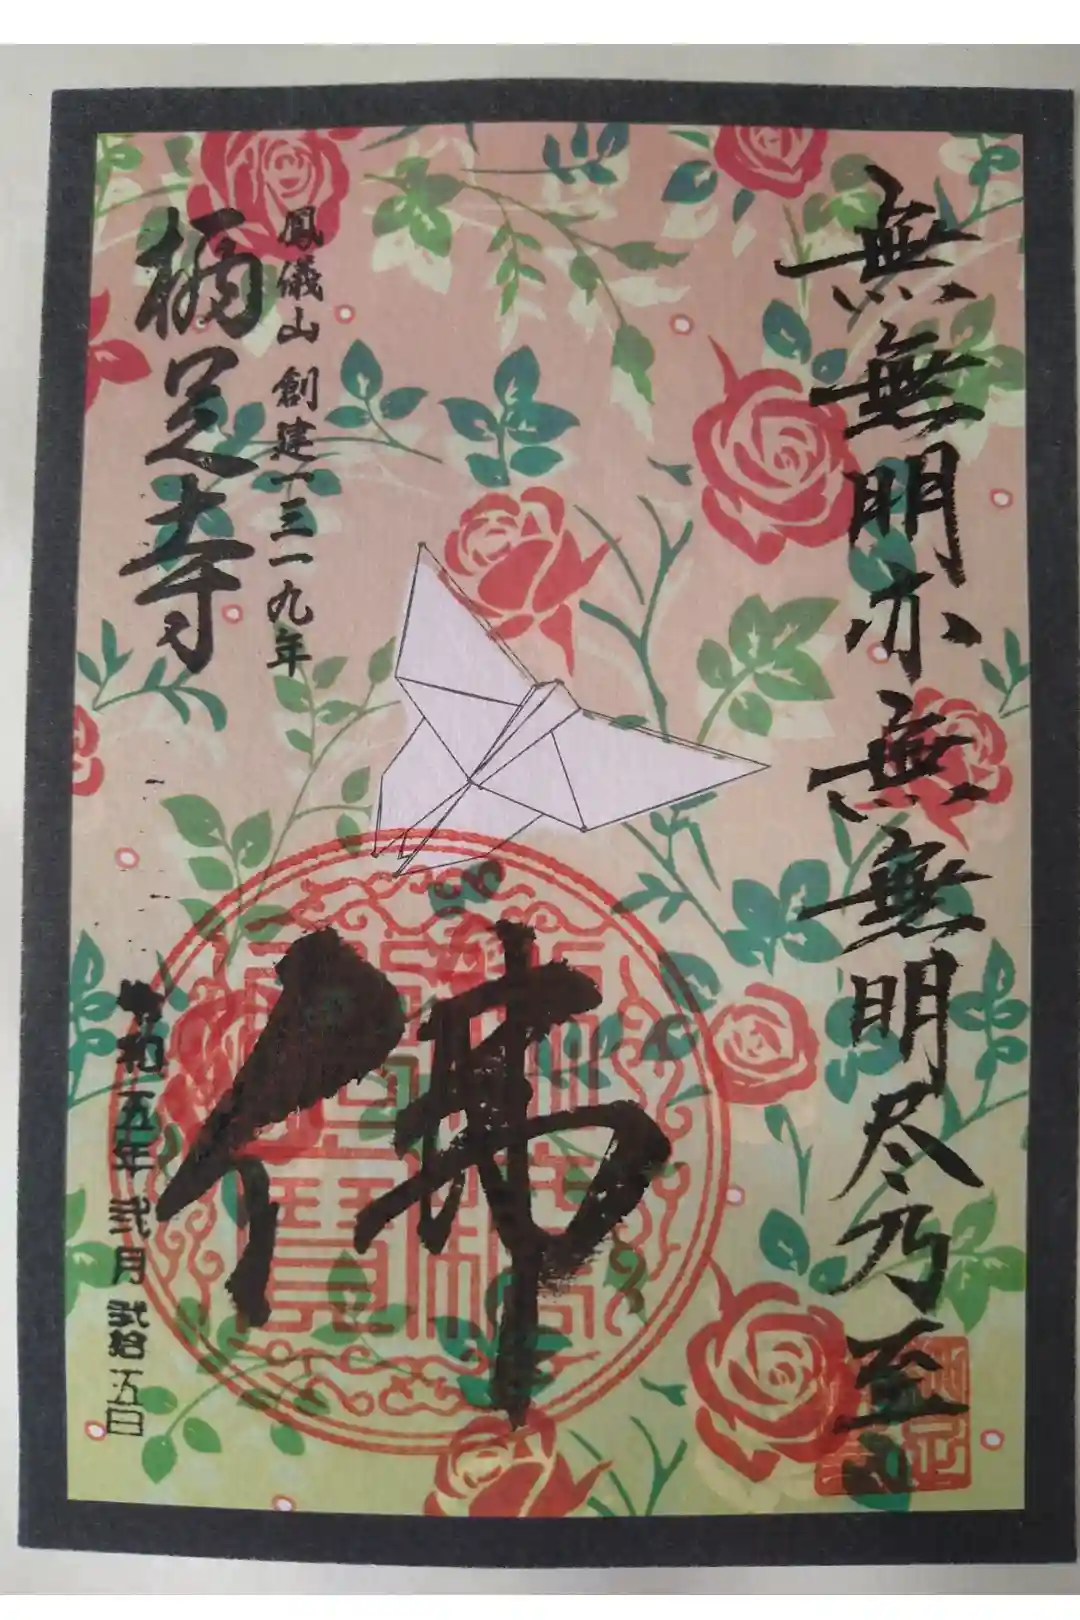 無無明亦無無明尽乃至
佛
鳳儀山 創建一三一九年
栖足寺
令和五年 弐月 弐拾五日